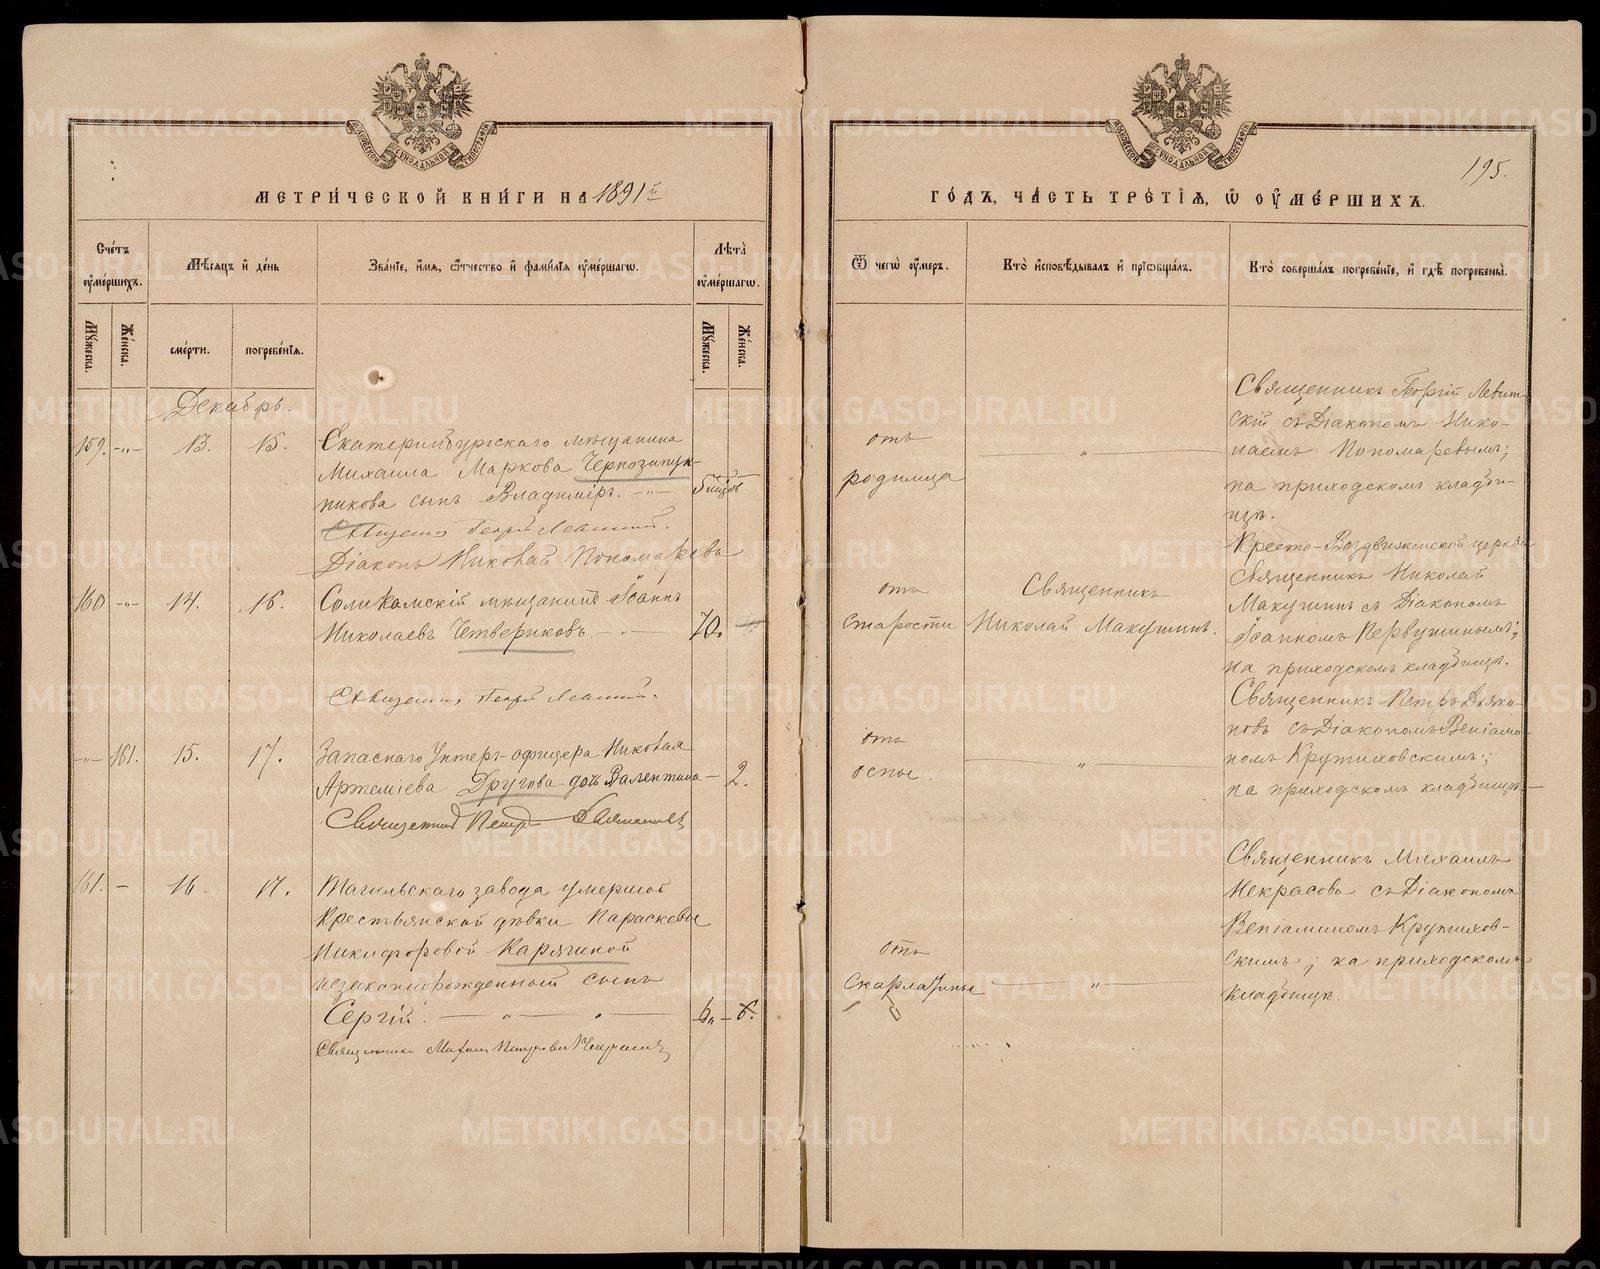 МЕТРИ́ЧЕСКОЙ КНИ́ГИ НА 1891 й
Счéтъ ᲂу҆мéршихъ.
Мѣ́сяцъ и҆ дéнь
Звáнїе, и҆́мя, ѻ҆́тчество и҆ фамѝлїя ᲂу҆мéршагѡ.
Лѣ́та ᲂу҆мéршагѡ.
Мꙋ́жеска.
Жéнска.
смéрти.
погребéнїя.
Мꙋ́жеска.
Жéнска.
Декабрь.
159. -„- 13. 15. Екатеринбургскаго мѣщанина
Михаила Маркова Чернозипун-
никова сынъ Владиміръ. -„- 5 мцов
Священник Георгій Левитский.
Діаконъ Николай Пономарева
160 -„- 14. 16. Соликамскій мѣщанинъ Іоаннъ
Николаевъ Четвериковъ. -„- 70.
Священник Георгій Левитский.
-„- 161. 15. 17. Запаснаго Унтеръ-офицера Николая
Артеміева Другова дочь Валентина - 2.
Священник Петръ
161. - 16. 17. Тагильскаго завода умершой
Крестьянской дѣвки Параскевы
Никифоровой Карягиной
незаконнорожденный сынъ
Сергій. - „ - „ - 6„ - 6.
Священник Михаил Некрасов
195.
ГО́ДЪ, ЧА́СТЬ ТРЕ́ТЇЯ, Ѡ҆ ОУ҆МЕ́РШИХЪ.
Ѿ чегѡ̀ ᲂу҆́меръ.
Ктò и҆сповѣ́дывалъ и҆ прїѡбщáлъ.
Ктò совершáлъ погребéнїе, и҆ гдѣ̀ погребены̀.
Священникъ Георгій Левит-
скій съ Діакономъ Нико-
лаемъ Пономаревымъ;
на приходскомъ кладби-
щѣ.
отъ
родимца
„
Кресто-Воздвиженской церкви
Священникъ Николай
Макушинъ съ Діакономъ
Іоанномъ Первушинымъ;
на приходскомъ кладбищѣ.
отъ
старости
Священникъ
Николай Макушинъ.
Священникъ Петръ Дьяко-
новъ съ Діакономъ Веніами-
номъ Крутиховскимъ;
на приходскомъ кладбищѣ
отъ
оспы.
„
Священникъ Михаилъ
Некрасовъ съ Діакономъ
Веніаминомъ Крутихов-
скимъ; на приходскомъ
кладбищѣ.
отъ
Скарлатины
„
METRIKI.GASO-URAL.RU